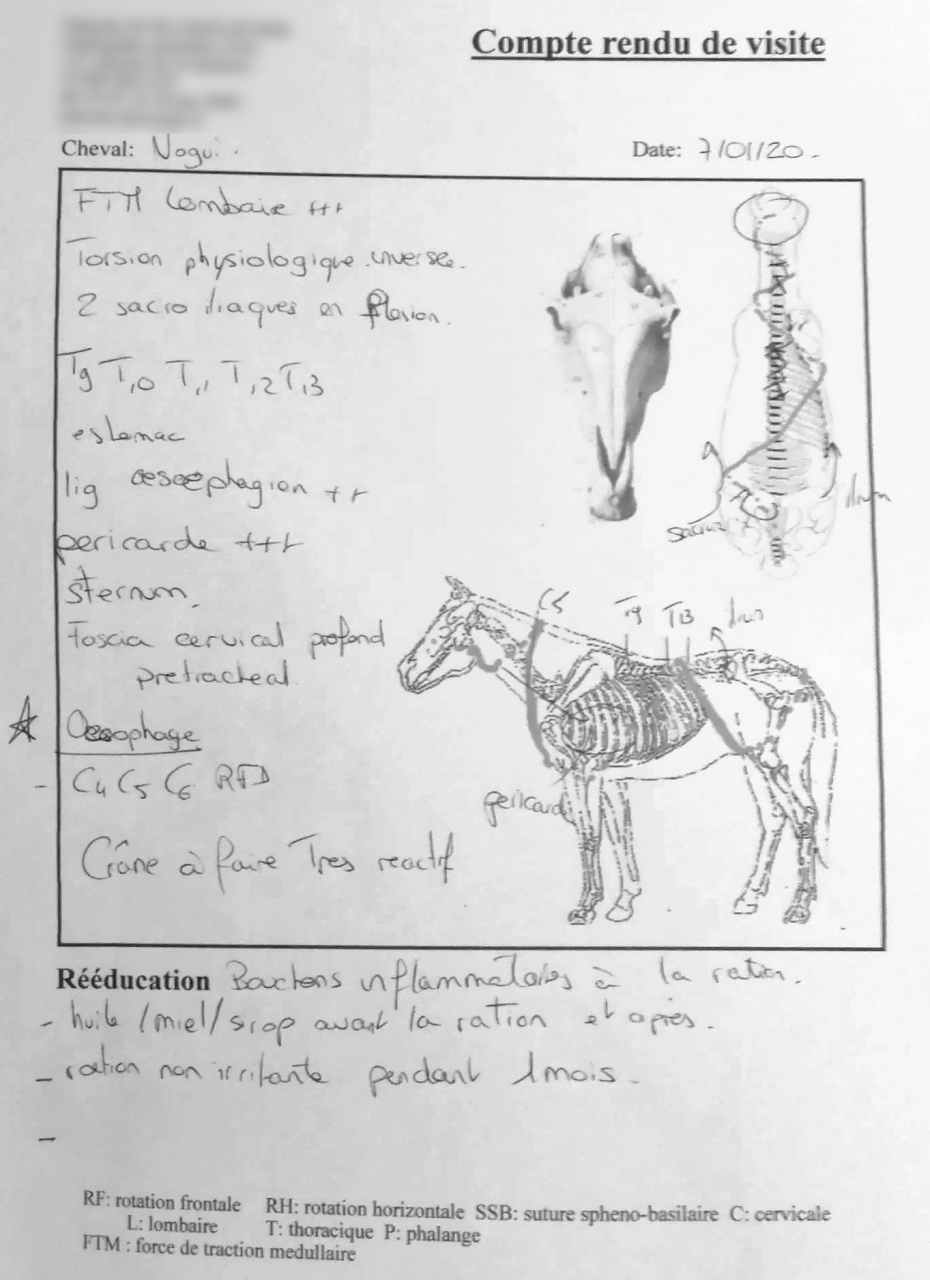 Compte rendu de visite
Cheval: Nogui.
Date: 7/01/20.
FTM Lombaire +++
Torsion physiologique inverse.
2 sacro iliaques en flexion.
T9 T10 T11 T12 T13
estomac
lig oesophagien ++
pericarde +++
sternum.
Fascia cervical profond
pretracheal
Oesophage
- C4 C5 C6 RFD
Crâne à faire Tres reactif
sacrum
ilium
C5
T9
T13
ilium
pericarde
Rééducation inflammatoires à la ration.
- huile/miel/sirop avant la ration et après.
- ration non irritante pendant 1 mois.
-
RF: rotation frontale RH: rotation horizontale SSB: suture spheno-basilaire C: cervicale
L: lombaire T: thoracique P: phalange
FTM : force de traction medullaire